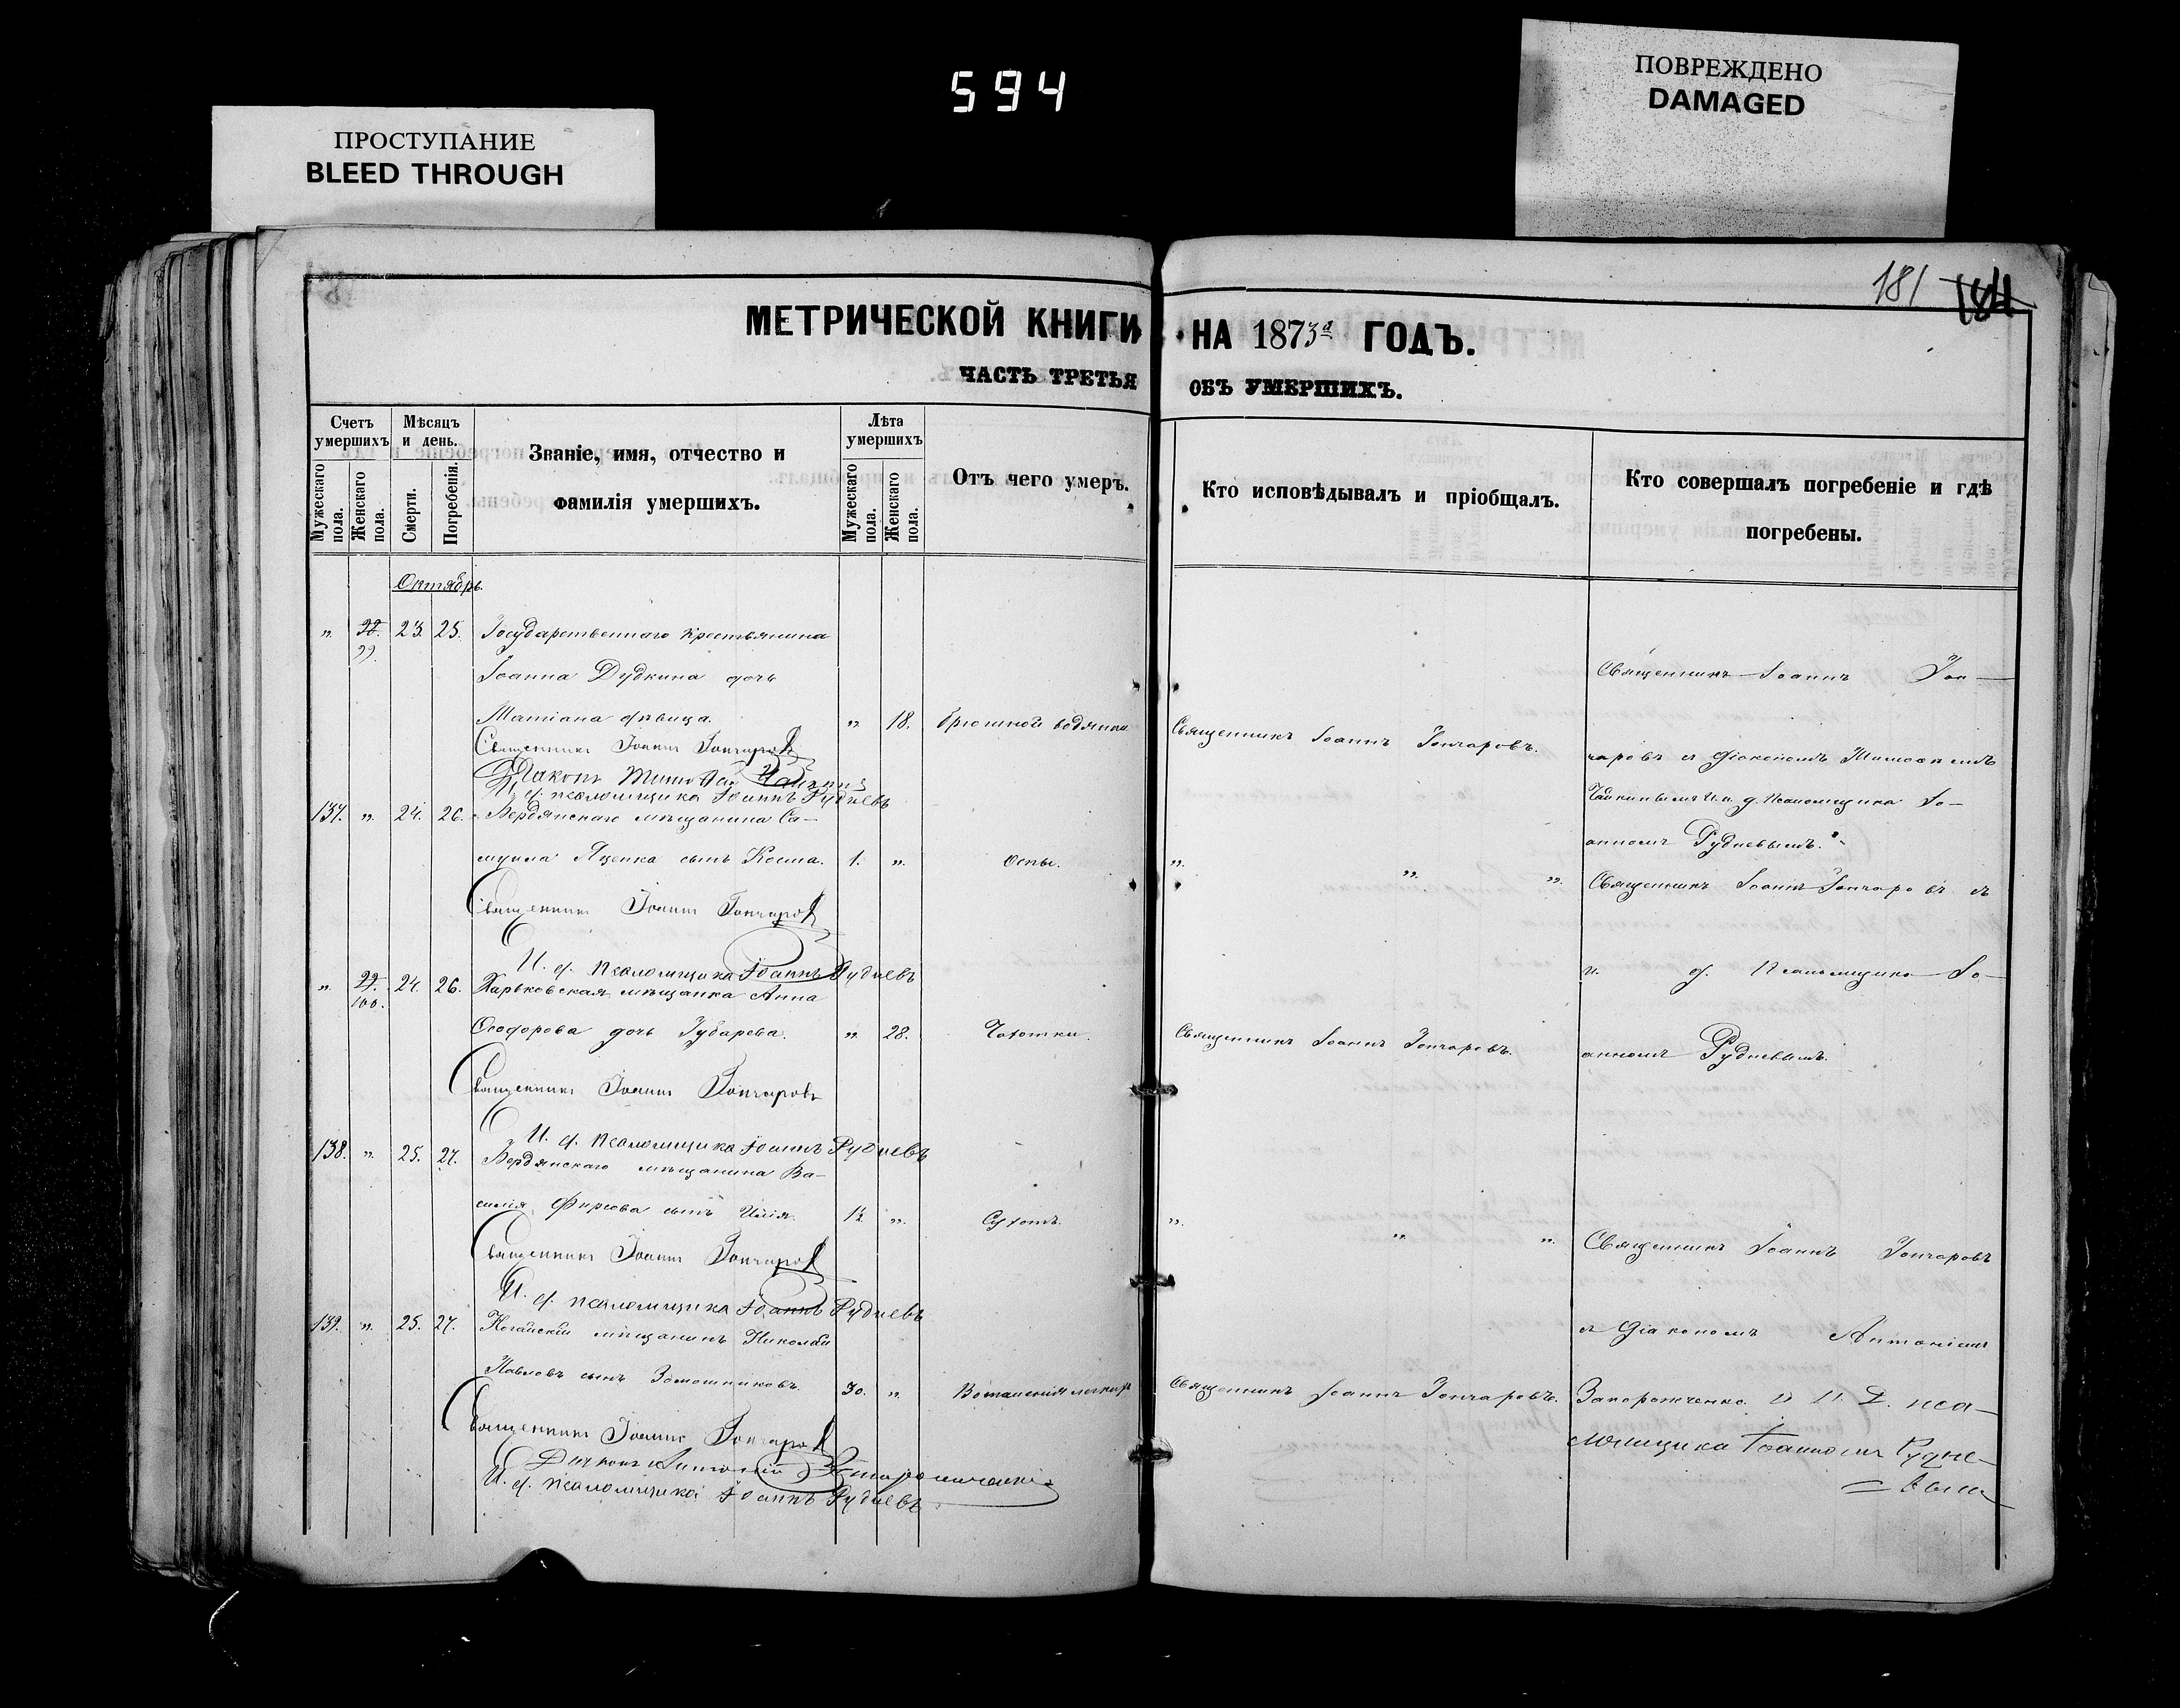 594
ПРОСТУПАНИЕ
BLEED THROUGH
ПОВРЕЖДЕНО
DAMAGED
181
МЕТРИЧЕСКОЙ КНИГИ НА 1873й ГОДЪ.
ЧАСТЬ ТРЕТЬЯ ОБЪ УМЕРШИХЪ.
Счетъ умершихъ
Мужескаго пола.
Женскаго пола.
Мѣсяцъ и день.
Смерти.
Погребенія.
Званіе, имя, отчество и
фамилія умершихъ.
Лѣта умершихъ
Мужескаго пола.
Женскаго пола.
Отъ чего умеръ.
Кто исповѣдывалъ и пріобщалъ.
Кто совершалъ погребеніе и гдѣ
погребены.
Октябрь.
" 98. 23. 25. Государственнаго крестьянина
99.
Іоанна Дудкина дочь
Татіана дѣвица. " 18. брюшной водянки
Священникъ Іоаннъ Гончаровъ
Діаконъ
И. д. псаломщика Іоаннъ Рудневъ
Священникъ Іоаннъ Гончаровъ.
Священникъ Іоаннъ Гон—
чаровъ съ діакономъ
И. д. Псаломщика Іо—
анномъ Рудневымъ.
137. " 24. 26. Бердянскаго мѣщанина Са—
муила Яценка сынъ Косма. 1. " Оспы. " " "
Священникъ Іоаннъ Гончаровъ
И. д. псаломщика Іоаннъ Рудневъ
Священникъ Іоаннъ Гончаровъ съ
и. д. Псаломщика Іо—
анномъ Рудневымъ.
" 99. 24. 26. Харьковская мѣщанка Анна
100.
Ѳеодорова дочь Зубарева. " 28. Чахотки.
Священникъ Іоаннъ Гончаровъ.
Священникъ Іоаннъ Гончаровъ
И. д. псаломщика Іоаннъ Рудневъ
138. " 25. 27. Бердянскаго мѣщанина Ва—
силія Фирсова сынъ Илія. 1½ " Сухотъ. " " "
Священникъ Іоаннъ Гончаровъ
И. д. псаломщика Іоаннъ Рудневъ
Священникъ Іоаннъ Гончаровъ
съ діакономъ Антоніемъ
139. " 25. 27. Ногайскій мѣщанинъ Николай
Павловъ сынъ 30. "
Священникъ Іоаннъ Гончаровъ.
и И. Д. пса—
ломщика Іоанномъ Рудне—
=вымъ
Священникъ Іоаннъ Гончаровъ
Діаконъ Антоній
И. д. псаломщика Іоаннъ Рудневъ.